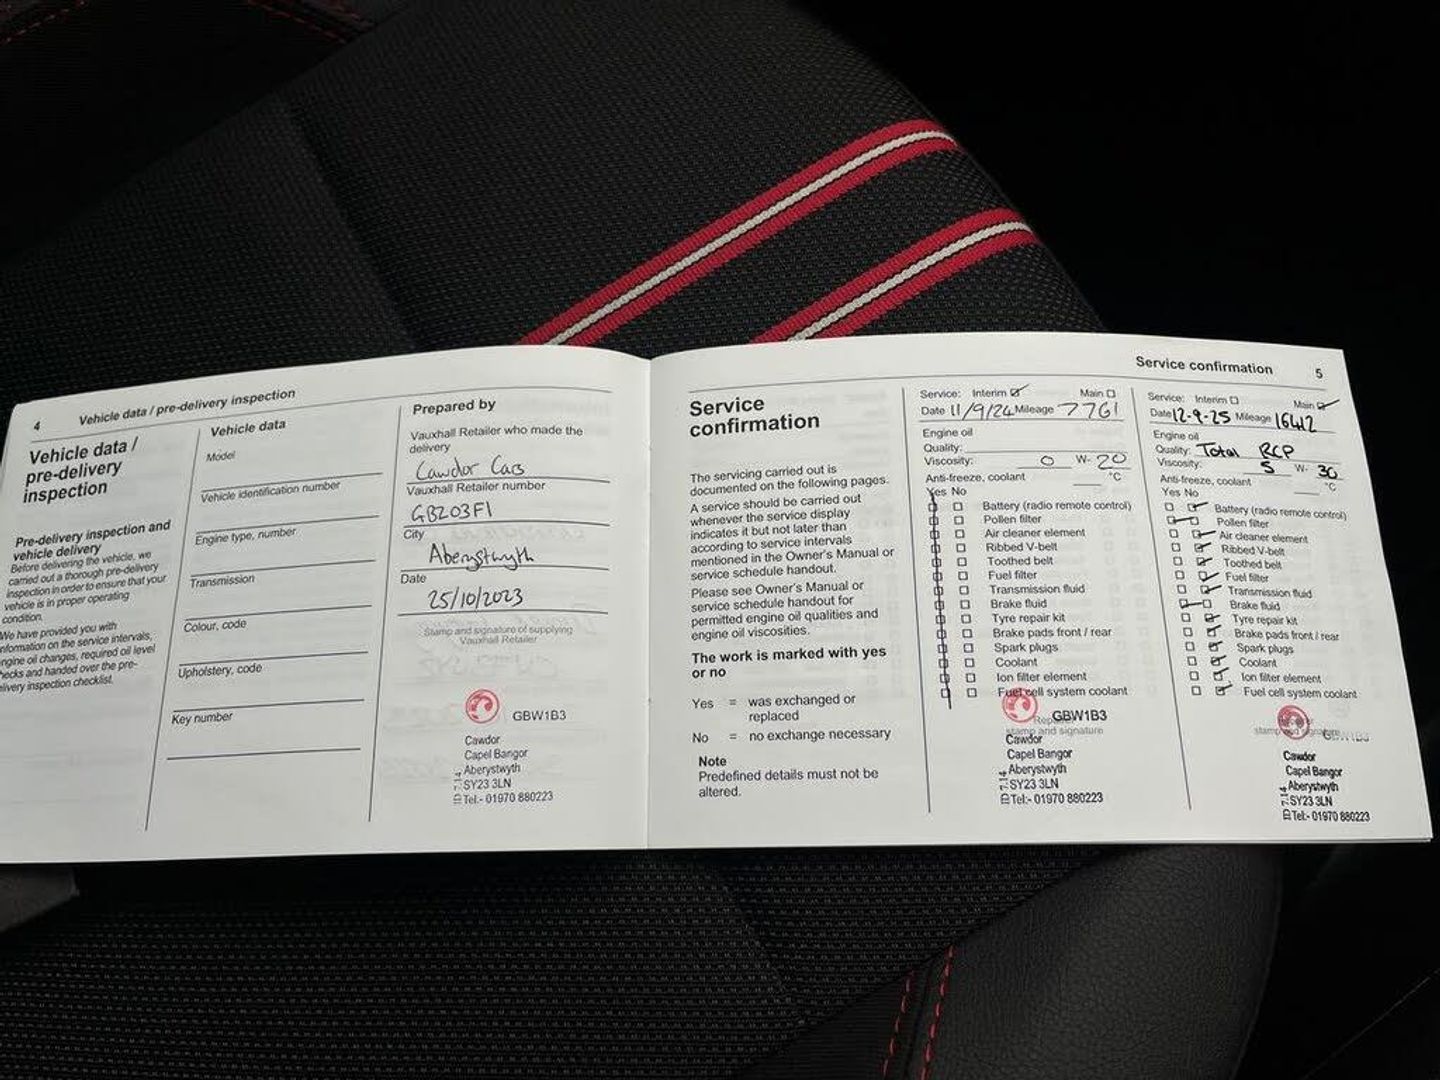 4
Vehicle data / pre-delivery inspection
Vehicle data /
pre-delivery
inspection
Pre-delivery inspection and
vehicle delivery
Before delivering the vehicle, we
carried out a thorough pre-delivery
inspection in order to ensure that your
vehicle is in proper operating
condition.
We have provided you with
information on the service intervals,
engine oil changes, required oil level
checks and handed over the pre-
delivery inspection checklist.
Vehicle data
Model
Vehicle identification number
Engine type, number
Transmission
Colour, code
Upholstery, code
Key number
Prepared by
Vauxhall Retailer who made the
delivery
Cawdor Cars
Vauxhall Retailer number
GB203F1
City
Aberystwyth
Date
25/10/2023
Stamp and signature of supplying
Vauxhall Retailer
GBW1B3
Cawdor
Capel Bangor
Aberystwyth
SY23 3LN
Tel:- 01970 880223
ID 7.14
Service confirmation
5
Service
confirmation
The servicing carried out is
documented on the following pages.
A service should be carried out
whenever the service display
indicates it but not later than
according to service intervals
mentioned in the Owner's Manual or
service schedule handout.
Please see Owner's Manual or
service schedule handout for
permitted engine oil qualities and
engine oil viscosities.
The work is marked with yes
or no
Yes = was exchanged or
replaced
No = no exchange necessary
Note
Predefined details must not be
altered.
Service: Interim Main
Date 11/9/24 Mileage 7761
Engine oil
Quality:
Viscosity: 0 W- 20
Anti-freeze, coolant °C
Yes No
Battery (radio remote control)
Pollen filter
Air cleaner element
Ribbed V-belt
Toothed belt
Fuel filter
Transmission fluid
Brake fluid
Tyre repair kit
Brake pads front / rear
Spark plugs
Coolant
Ion filter element
Fuel cell system coolant
GBW1B3
stamp and signature
Cawdor
Capel Bangor
Aberystwyth
SY23 3LN
Tel:- 01970 880223
ID 7.14
Service: Interim Main
Date 12-9-25 Mileage 16412
Engine oil
Quality: Total RCP
Viscosity: 5 W- 30
Anti-freeze, coolant °C
Yes No
Battery (radio remote control)
Pollen filter
Air cleaner element
Ribbed V-belt
Toothed belt
Fuel filter
Transmission fluid
Brake fluid
Tyre repair kit
Brake pads front / rear
Spark plugs
Coolant
Ion filter element
Fuel cell system coolant
GBW1B3
Cawdor
Capel Bangor
Aberystwyth
SY23 3LN
Tel:- 01970 880223
ID 7.14